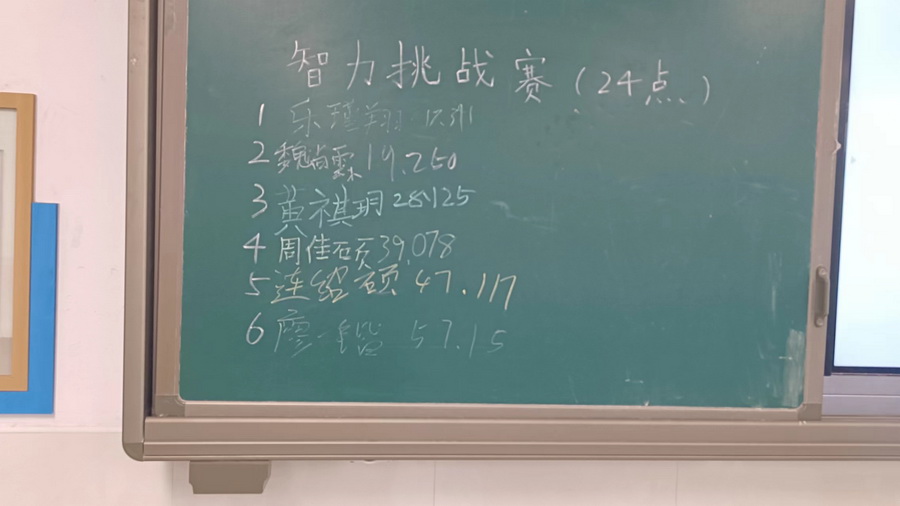 智力挑战赛(24点)
1 乐瑾翔
2 魏尚霖 19.250
3 黄祺玥 28.125
4 周佳硕 39.078
5 连绍硕 47.117
6 廖一锴 57.15